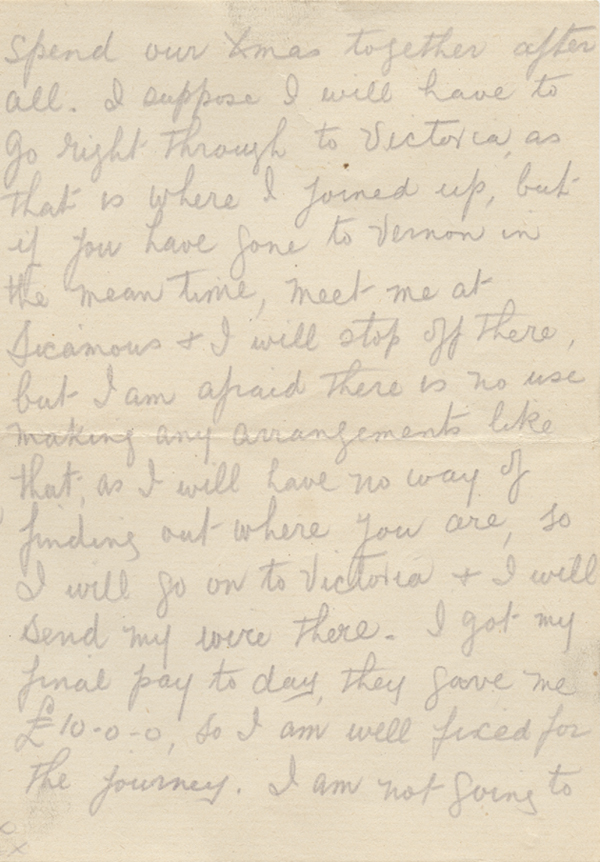 spend our Xmas together after
all. I suppose I will have to
go right through to Victoria, as
that is where I joined up, but
if you have gone to Vernon in
the mean time, meet me at
Sicamous + I will stop off there,
but I am afraid there is no use
making any arrangements like
that, as I will have no way of
finding out where you are, so
I will go on to Victoria + I will
send my wire there. I got my
final pay to day, they gave me
£10-0-0, so I am well fixed for
the journey. I am not going to